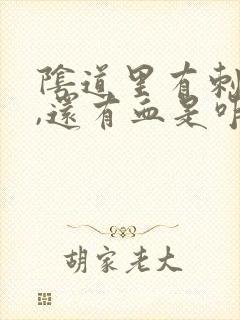 陰道里有刺
,還有血是
胡家老大